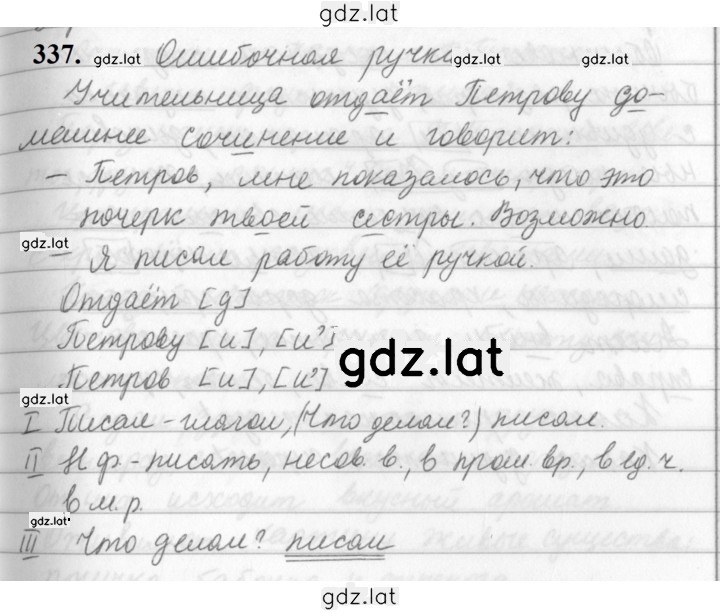 gdz.lat
337. gdz.lat Ошибочная ручка gdz.lat gdz.lat
Учительница отдаёт Петрову до-
машнее сочинение и говорит:
– Петров, мне показалось, что это
почерк твоей сестры. Возможно
gdz.lat
– Я писал работу её ручкой.
Отдаёт [д]
Петрову [и], [и³]
gdz.lat
Петров [и], [и³]
gdz.lat
I Писал – глагол, (Что делал?) писал.
gdz.lat
II Н.ф. – писать, несов. в., в прош. вр., в ед. ч.
в м. р.
gdz.lat
III Что делал? писал
gdz.lat